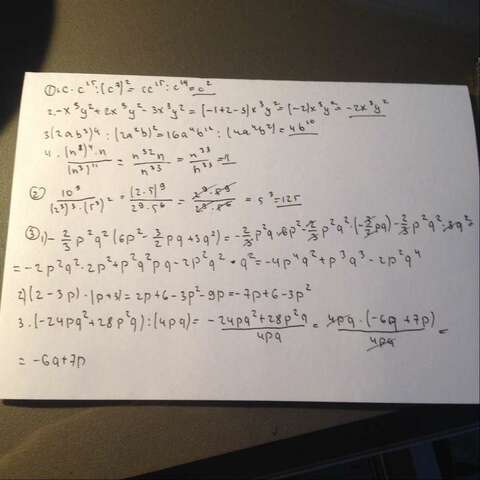 ① 1. c · c¹⁵ : (c⁷)² = cc¹⁵ : c¹⁴ = c²
2. -x³y² + 2x³y² - 3x³y² = (-1+2-3)x³y² = (-2)x³y² = -2x³y²
3. (2ab³)⁴ : (2a²b)² = 16a⁴b¹² : (4a⁴b²) = 4b¹⁰
4. (n⁸)⁴ · n / (n³)¹¹ = n³²n / n³³ = n³³ / n³³ = 1
② 10⁹ / (2³)³·(5³)² = (2·5)⁹ / 2⁹·5⁶ = 2⁹·5⁹ / 2⁹·5⁶ = 5³ = 125
③ 1) -2/3 p²q² (6p² - 3/2 pq + 3q²) = -2/3 p²q · 6p² - 2/3 p²q² · (-3/2 pq) - 2/3 p²q² · 3q² =
= -2p²q² · 2p² + p²q²pq - 2p²q² · q² = -4p⁴q² + p³q³ - 2p²q⁴
2) (2-3p) · (p+3) = 2p+6-3p²-9p = -7p+6-3p²
3. (-24pq² + 28p²q) : (4pq) = -24pq² + 28p²q / 4pq = 4pq · (-6q + 7p) / 4pq =
= -6q + 7p